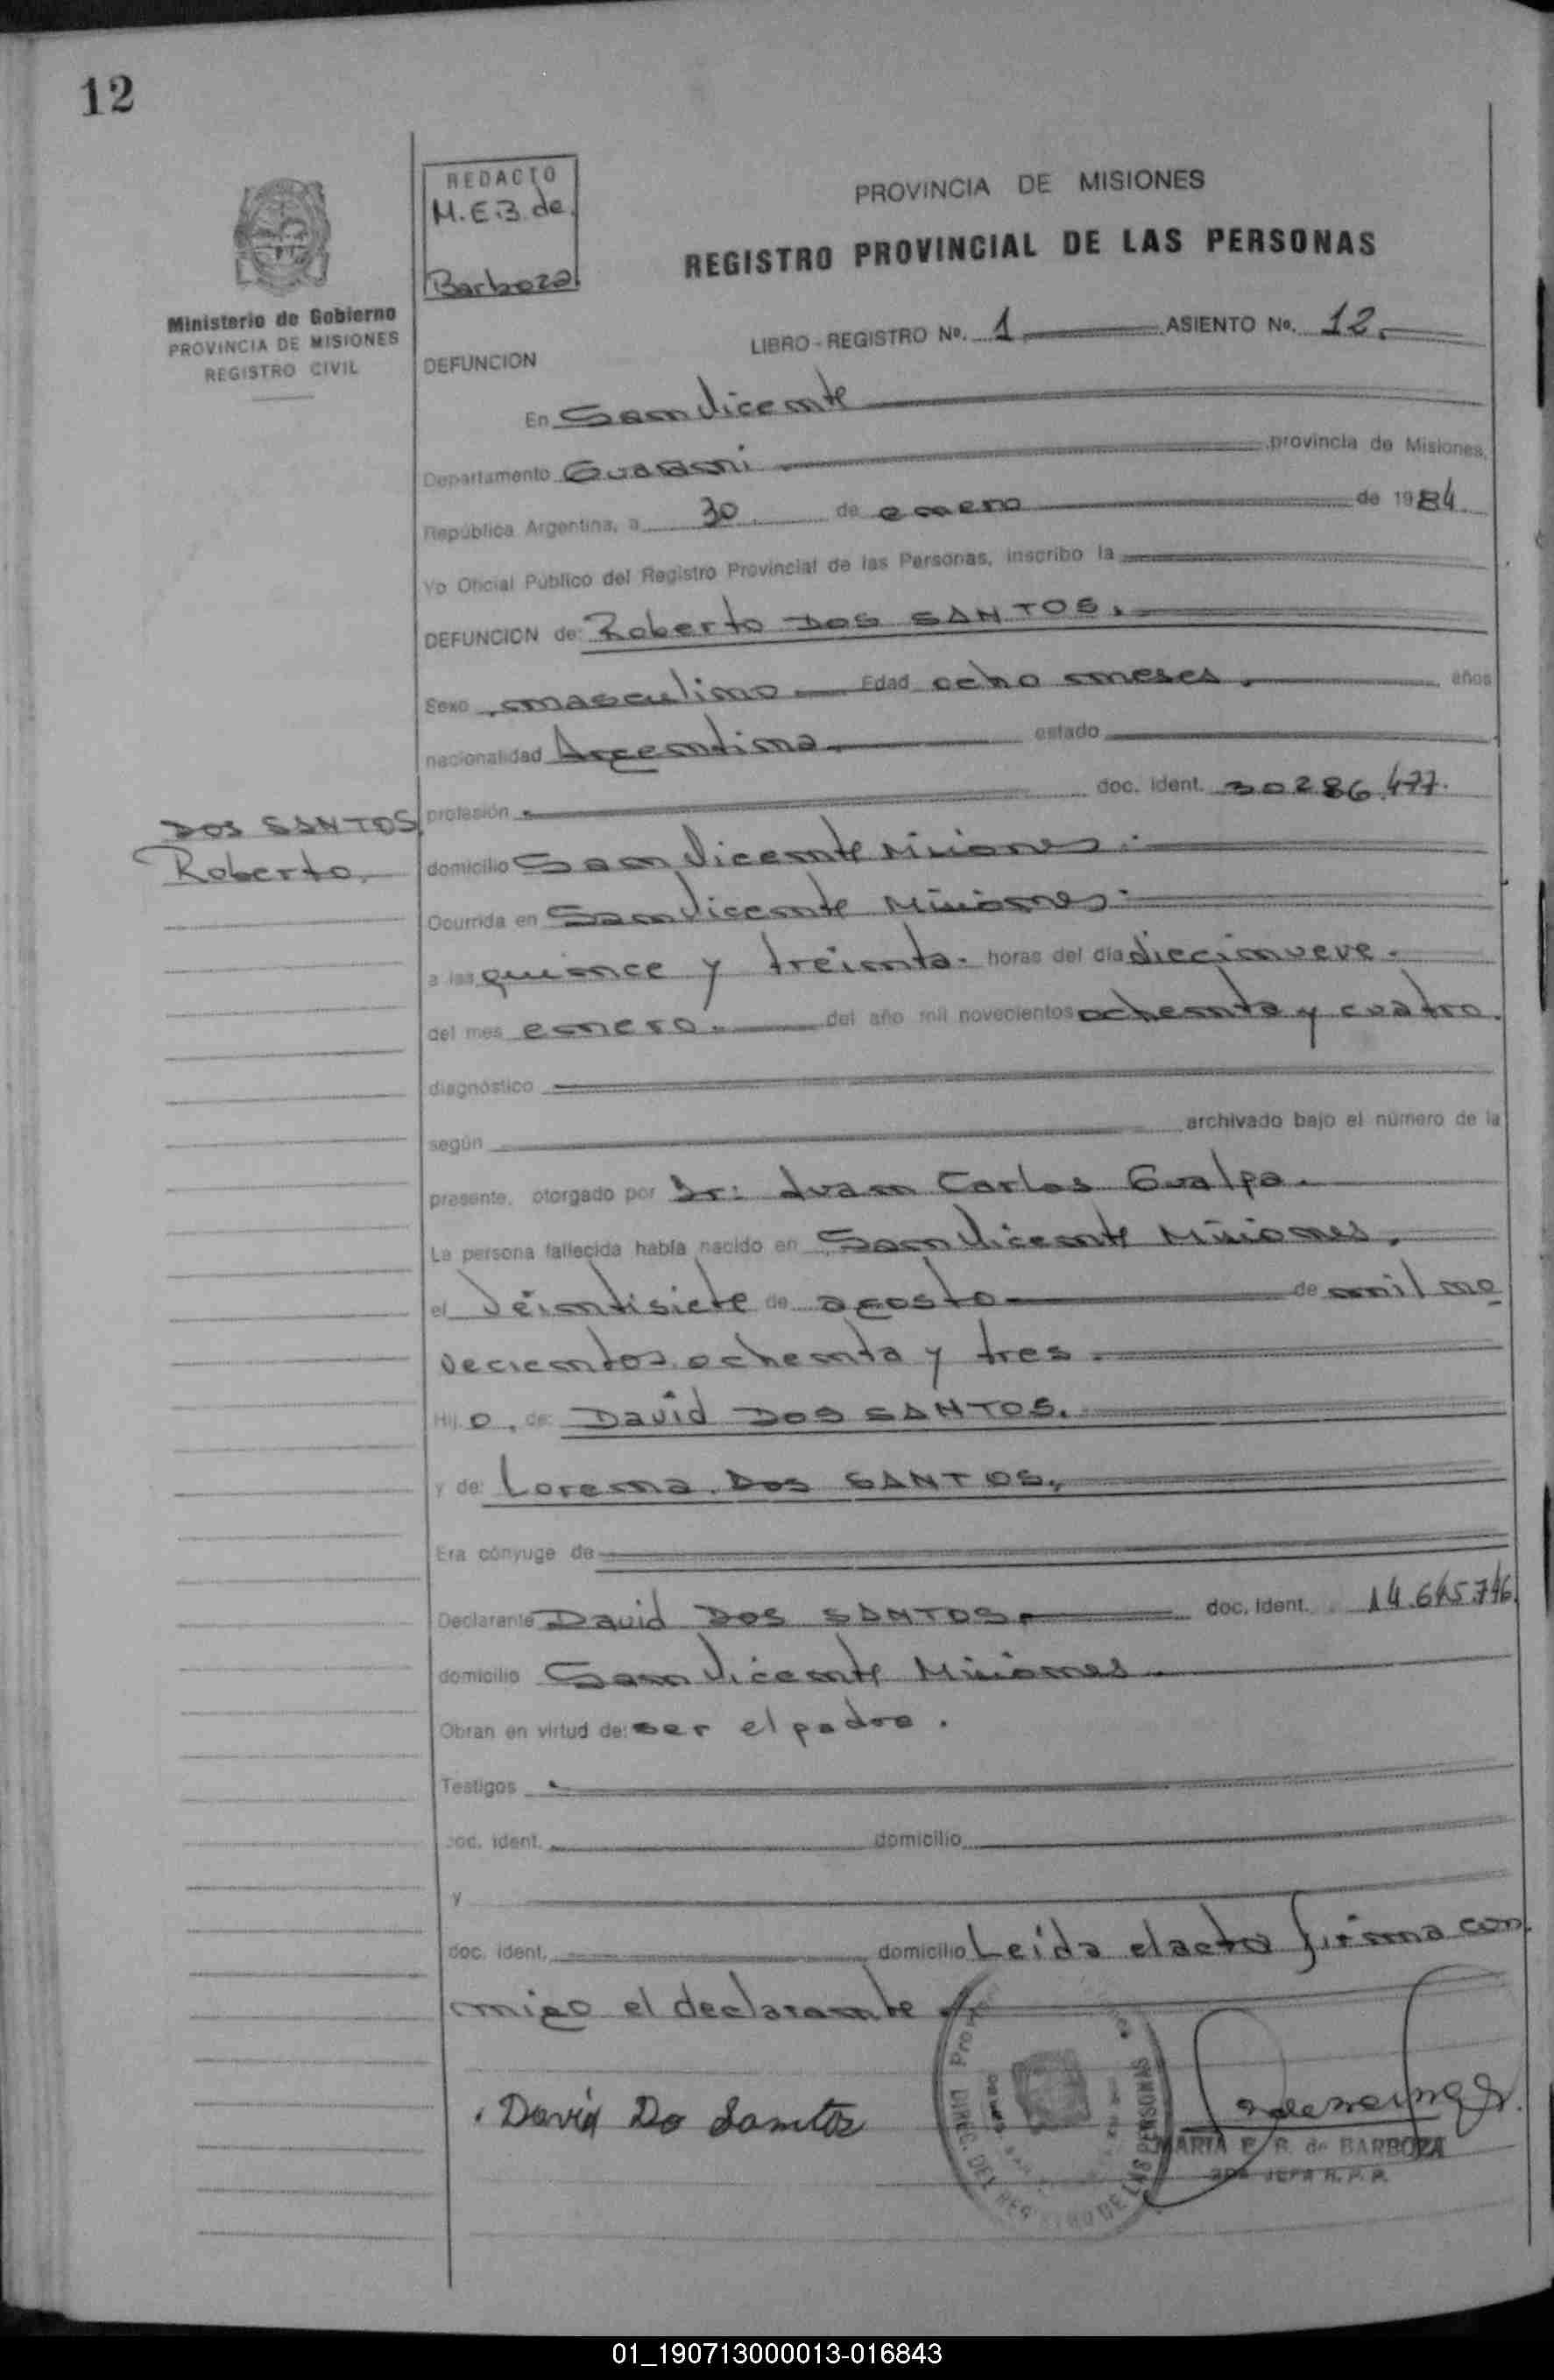 12
REDACTO
M.E.B. de
Barboza
Ministerio de Gobierno
PROVINCIA DE MISIONES
REGISTRO CIVIL
PROVINCIA DE MISIONES
REGISTRO PROVINCIAL DE LAS PERSONAS
LIBRO - REGISTRO Nº. 1 ASIENTO No. 12.
DEFUNCION
En San Vicente
Departamento Guarani provincia de Misiones,
República Argentina, a 30 de enero de 1984
Yo Oficial Público del Registro Provincial de las Personas, inscribo la
DEFUNCION de: Roberto DOS SANTOS.
Sexo masculino Edad ocho meses. años
nacionalidad Argentina. estado
profesión doc. ident. 30286.477.
DOS SANTOS
Roberto.
domicilio San Vicente Misiones.
Ocurrida en San Vicente Misiones.
a las quince y treinta. horas del día diecinueve.
del mes enero. del año mil novecientos ochenta y cuatro.
diagnóstico
según archivado bajo el número de la
presente, otorgado por Dr: Juan Carlos Gualpa.
La persona fallecida había nacido en San Vicente Misiones,
el Veintisiete de agosto de mil no
vecientos ochenta y tres.
Hij o, de: David DOS SANTOS.
y de: Lorena Dos SANTOS.
Era cónyuge de
Declarante David DOS SANTOS. doc. ident. 14.645.746
domicilio San Vicente Misiones.
Obran en virtud de: ser el padre.
Testigos
doc. ident. domicilio
y
doc. ident. domicilio Leida el acta firma con
migo el declarante
David Do Santos
DIREC. DEL REGISTRO DE LAS PERSONAS
MARIA E. B. de BARBOZA
JEFA R. P. P.
01_190713000013-016843